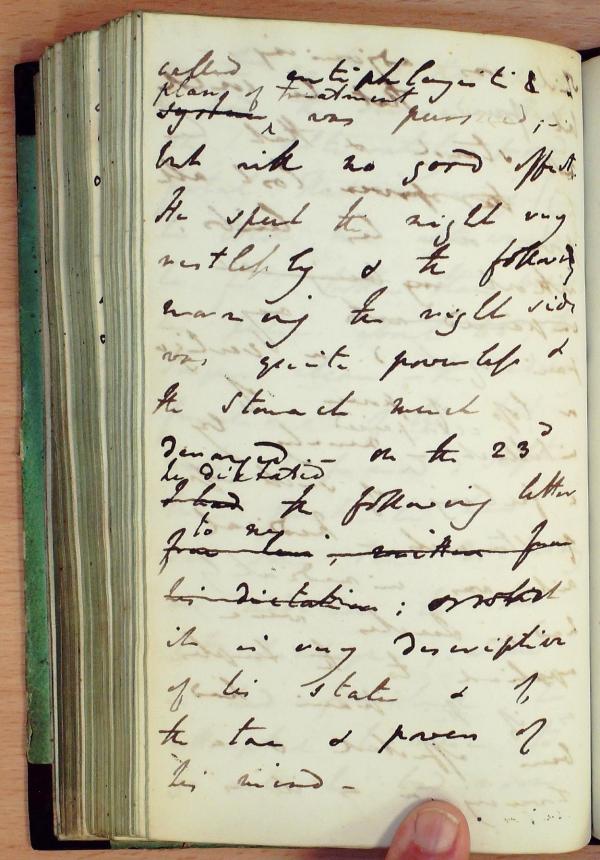 called antiphlogistic
plans of treatment
system was pursued;
but with no good effect.
He spent the night very
restlessly & the following
morning the right side
was quite powerless &
the stomach much
deranged. - on the 23d
he dictated
I had the following letter
to me
from him, written from
his dictation :
it is very descriptive
of his state & of
the tone & powers of
his mind -